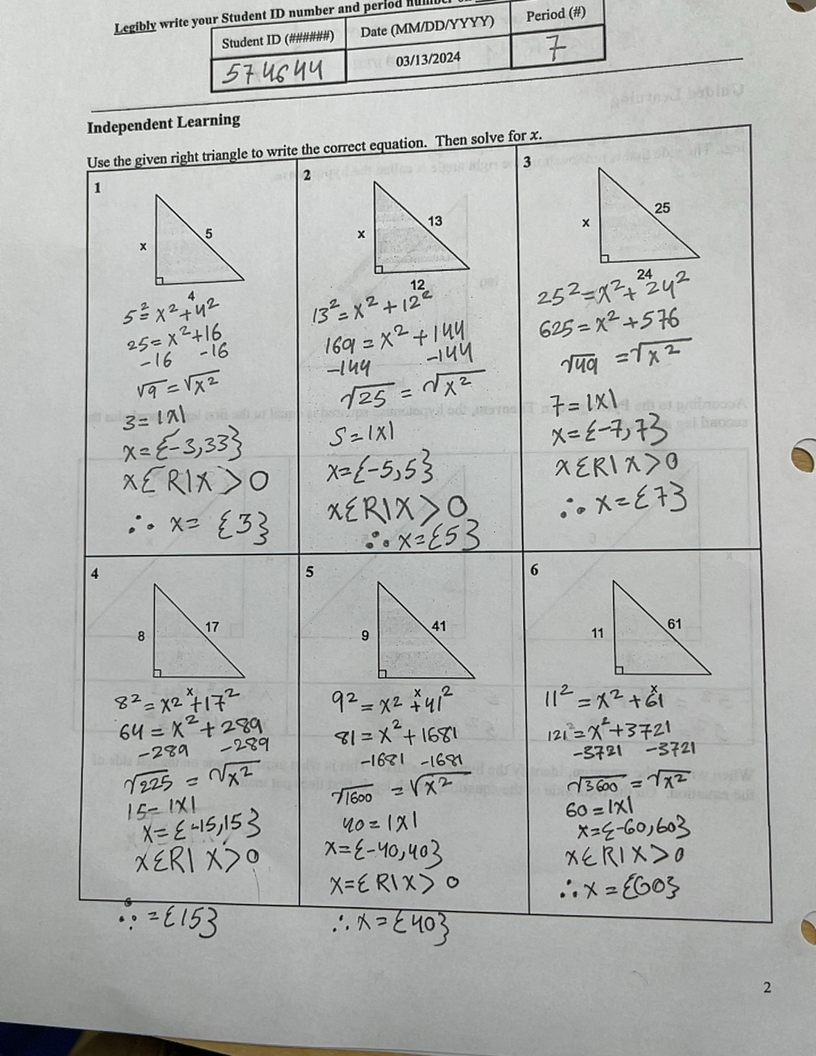 Legibly write your Student ID number and period number
Student ID (######) Date (MM/DD/YYYY) Period (#)
574644 03/13/2024 7
Independent Learning
Use the given right triangle to write the correct equation. Then solve for x.
1
x
5
4
5²=x²+4²
25=x²+16
-16 -16
√9=√x²
3=|x|
x={-3,33}
xƐR|x>0
∴ x= {3}
2
x
13
12
13²=x²+12²
169=x²+144
-144 -144
√25=√x²
5=|x|
x={-5,5}
xƐR|x>0
∴ x={5}
3
x
25
24
25²=x²+24²
625=x²+576
√49=√x²
7=|x|
x={-7,7}
xƐR|x>0
∴ x={7}
4
8
17
x
8²=x²+17²
64=x²+289
-289 -289
√225=√x²
15=|x|
x={-15,15}
xƐR|x>0
∴ ={15}
5
9
41
x
9²=x²+41²
81=x²+1681
-1681 -1681
√1600=√x²
40=|x|
x={-40,40}
x=ƐR|x>0
∴ x={40}
6
11
61
x
11²=x²+61
121²=x²+3721
-3721 -3721
√3600=√x²
60=|x|
x={-60,60}
xƐR|x>0
∴ x={60}
2